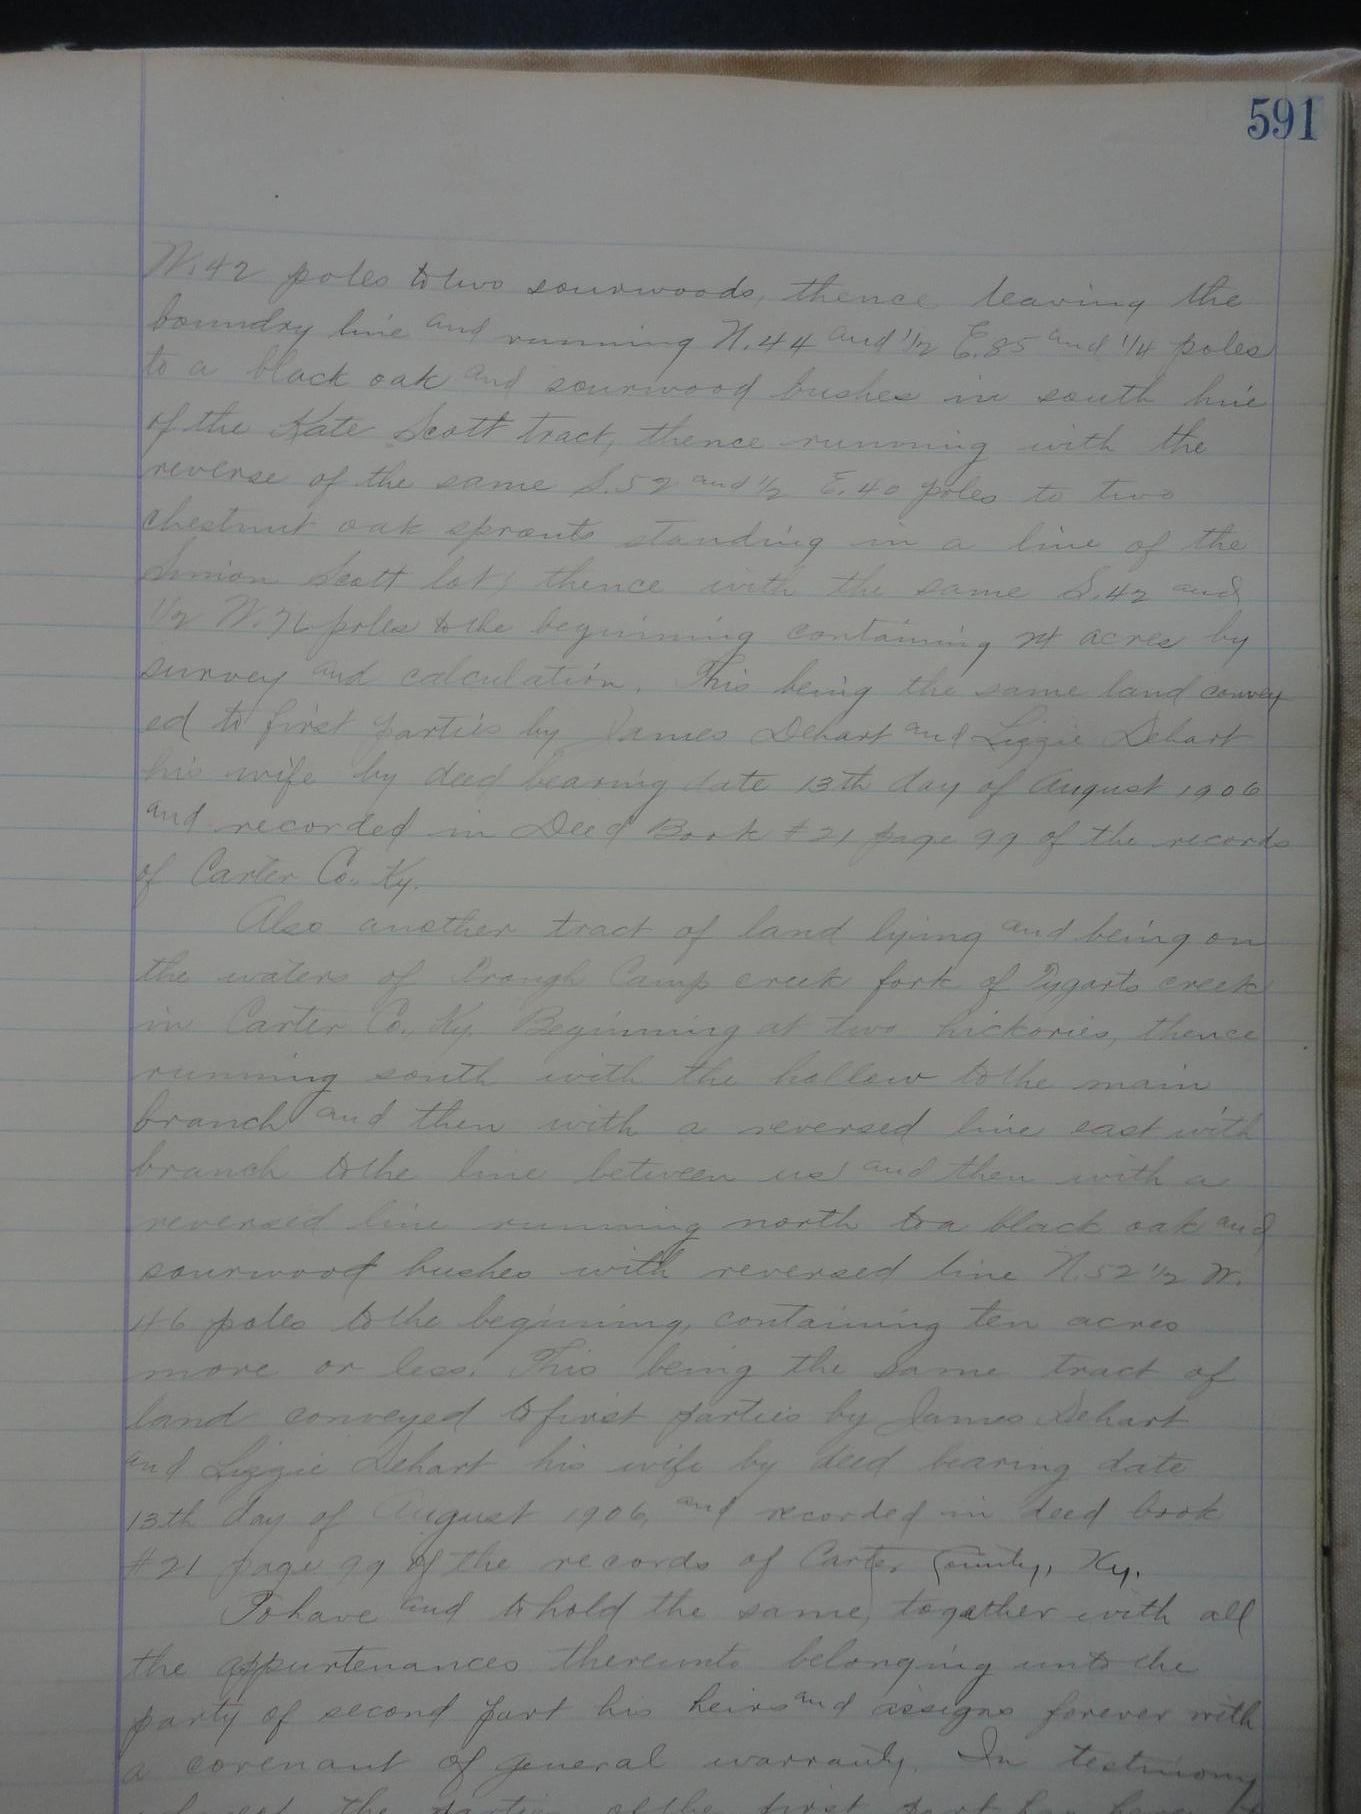 591
W. 42 poles to two sourwoods, thence leaving the
boundry line and running N. 44 and 1/2 E. 85 and 1/4 poles
to a black oak and sourwood bushes in south line
of the Kate Scott tract, thence running with the
reverse of the same S. 52 and 1/2 E. 40 poles to two
chestnut oak sprouts standing in a line of the
Simion Scott lot, thence with the same S. 42 and
1/2 W. poles to the beginning containing 24 acres by
survey and calculation. This being the same land convey
ed to first parties by James Dehart and Lizzie Dehart
his wife by deed bearing date 13th day of August 1906
and recorded in Deed Book #21 page 99 of the records
of Carter Co. Ky.
Also another tract of land lying and being on
the waters of Trough Camp creek fork of Tygarts creek
in Carter Co., Ky. Beginning at two hickories, thence
running south with the hollow to the main
branch and then with a reversed line east with
branch to the line between us and then with a
reversed line running north to a black oak and
sourwood bushes with reversed line N. 52 1/2 W.
46 poles to the beginning, containing ten acres
more or less. This being the same tract of
land conveyed to first parties by James Dehart
and Lizzie Dehart his wife by deed bearing date
13th day of August 1906, and recorded in deed book
#21 page 99 of the records of Carter County, Ky.
To have and to hold the same, together with all
the appurtenances thereunto belonging unto the
party of second part his heirs and assigns forever with
a covenant of general warranty. In testimony
the parties of the first part